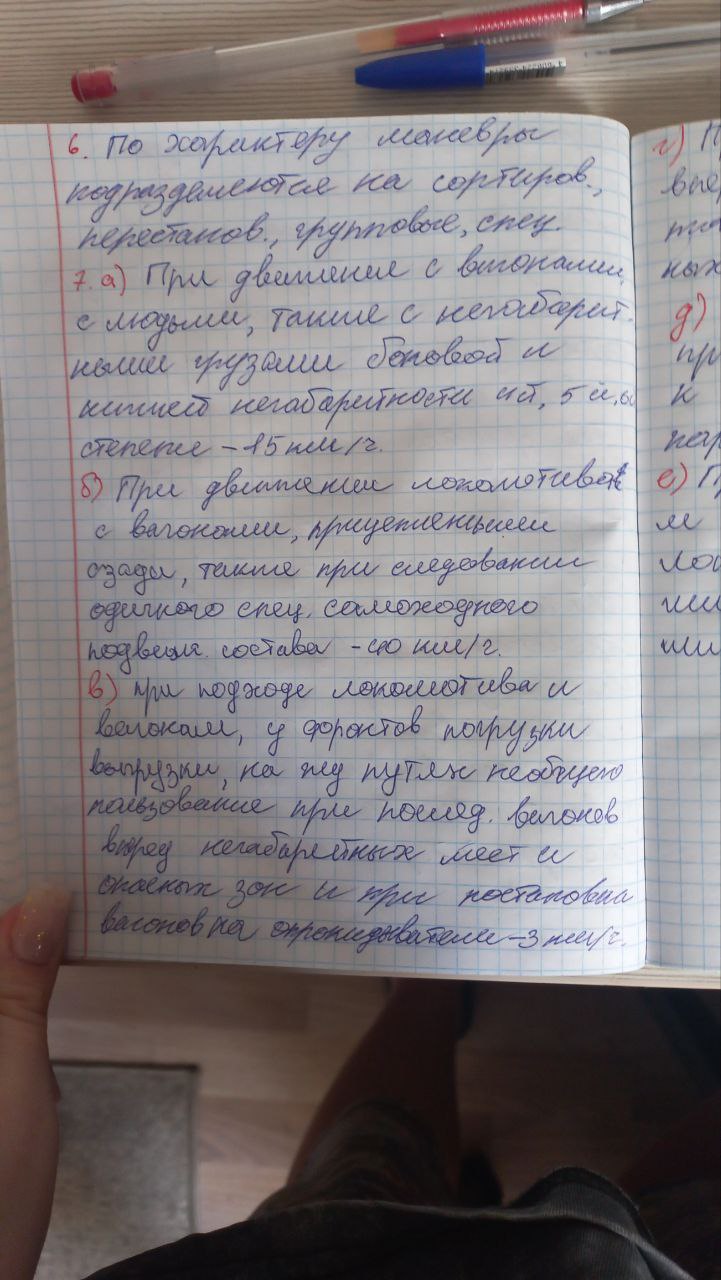 6. По характеру маневры
подразделяются на сортиров.,
перестанов., групповые, спец.
7. а) При движение с вагонами,
с людьми, также с негабарит-
ными грузами боковой и
нижней негабаритности 4й, 5й,
степени – 15 км/ч.
б) При движении локомотивов
с вагонами, прицепленными
сзади, также при следовании
одичкого спец. самоходного
подвешн. состава – 40 км/ч.
в) при подходе локомотива и
вагонам, у фронтов погрузки
выгрузки, на жд путях необщего
пользование при послед. вагонов
вперед негабаритных мест и
опасных зон и при постановка
вагонов на опрокидыватели – 3 км/ч.
г) П
вые
ных
д)
пр
к
пар
е) П
м
ло
ши
ши